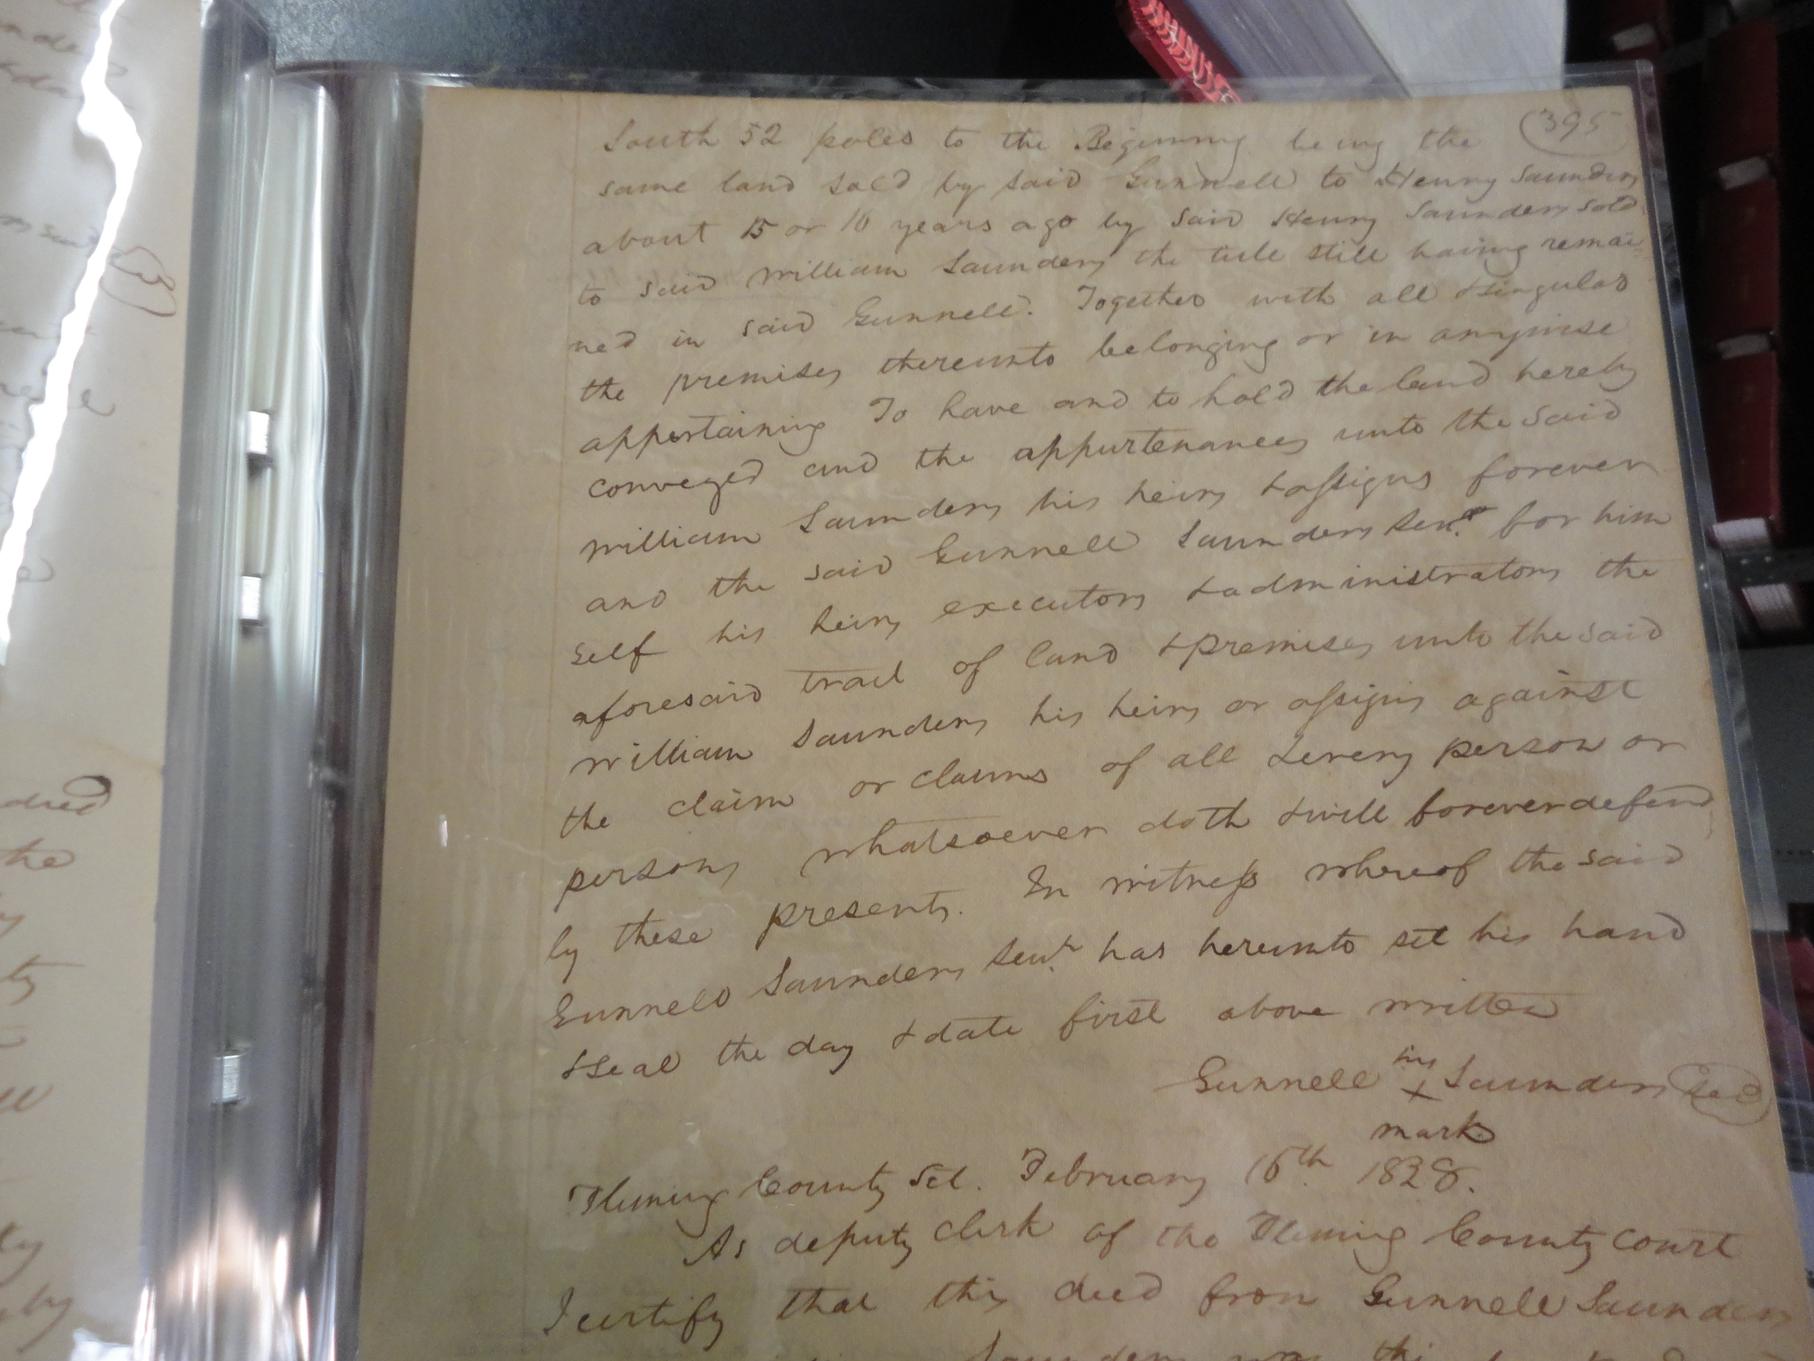 395
South 52 poles to the Beginning being the
same land sold by said Gunnell to Henry Saunders
about 15 or 16 years ago by said Henry Saunders sold
to said William Saunders the title still having remai
ned in said Gunnell. Together with all & singular
the premises thereunto belonging or in anywise
appertaining To have and to hold the land hereby
conveyed and the appurtenances unto the said
William Saunders his heirs & assigns forever
and the said Gunnell Saunders Senr. for him
self his heirs executors & administrators the
aforesaid tract of land & premises unto the said
William Saunders his heirs or assigns against
the claim or claims of all & every person or
persons whatsoever doth & will forever defend
by these presents. In witness whereof the said
Gunnell Saunders Senr. has hereunto set his hand
& seal the day & date first above written
Gunnell his x mark Saunders Seal
Fleming County Sct. February 16th 1828.
As deputy clerk of the Fleming County court
I certify that this deed from Gunnell Saunders
Saunders was this